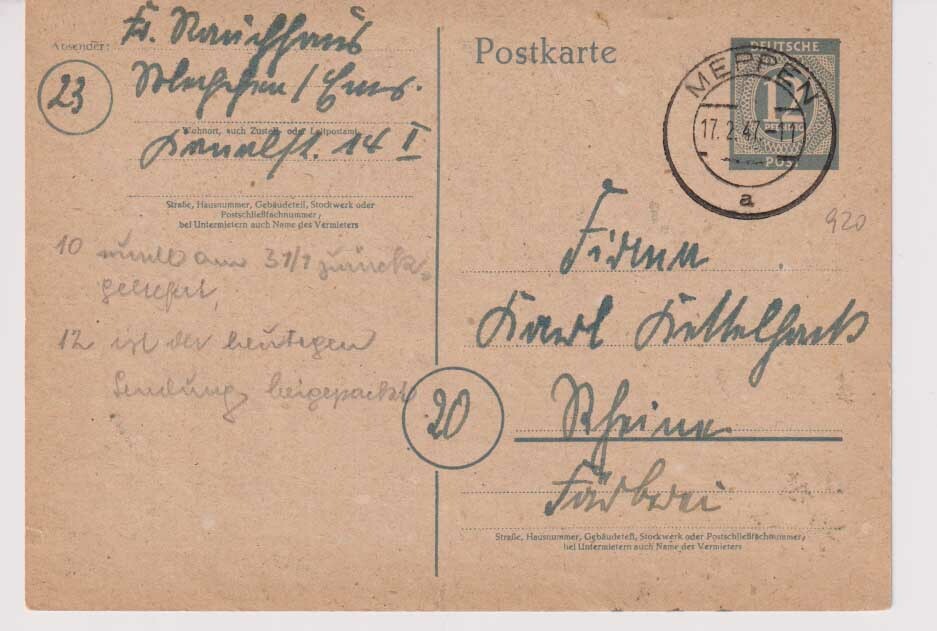 Absender:
Fr. Rauchhaus
23
Meppen / Ems.
Wohnort, auch Zustell- oder Leitpostamt
Kanalst. 14 I
Straße, Hausnummer, Gebäudeteil, Stockwerk oder
Postschließfachnummer;
bei Untermietern auch Name des Vermieters
10 wurde am 31/1 zurück-
geliefert,
12 ist der heutigen
Sendung beigepackt
Postkarte
DEUTSCHE
12
PFENNIG
POST
MEPPEN
17.2.47.-11
a
920
Firma
Karl Kettelhack
20
Rheine
Färberei
Straße, Hausnummer, Gebäudeteil, Stockwerk oder Postschließfachnummer;
bei Untermietern auch Name des Vermieters